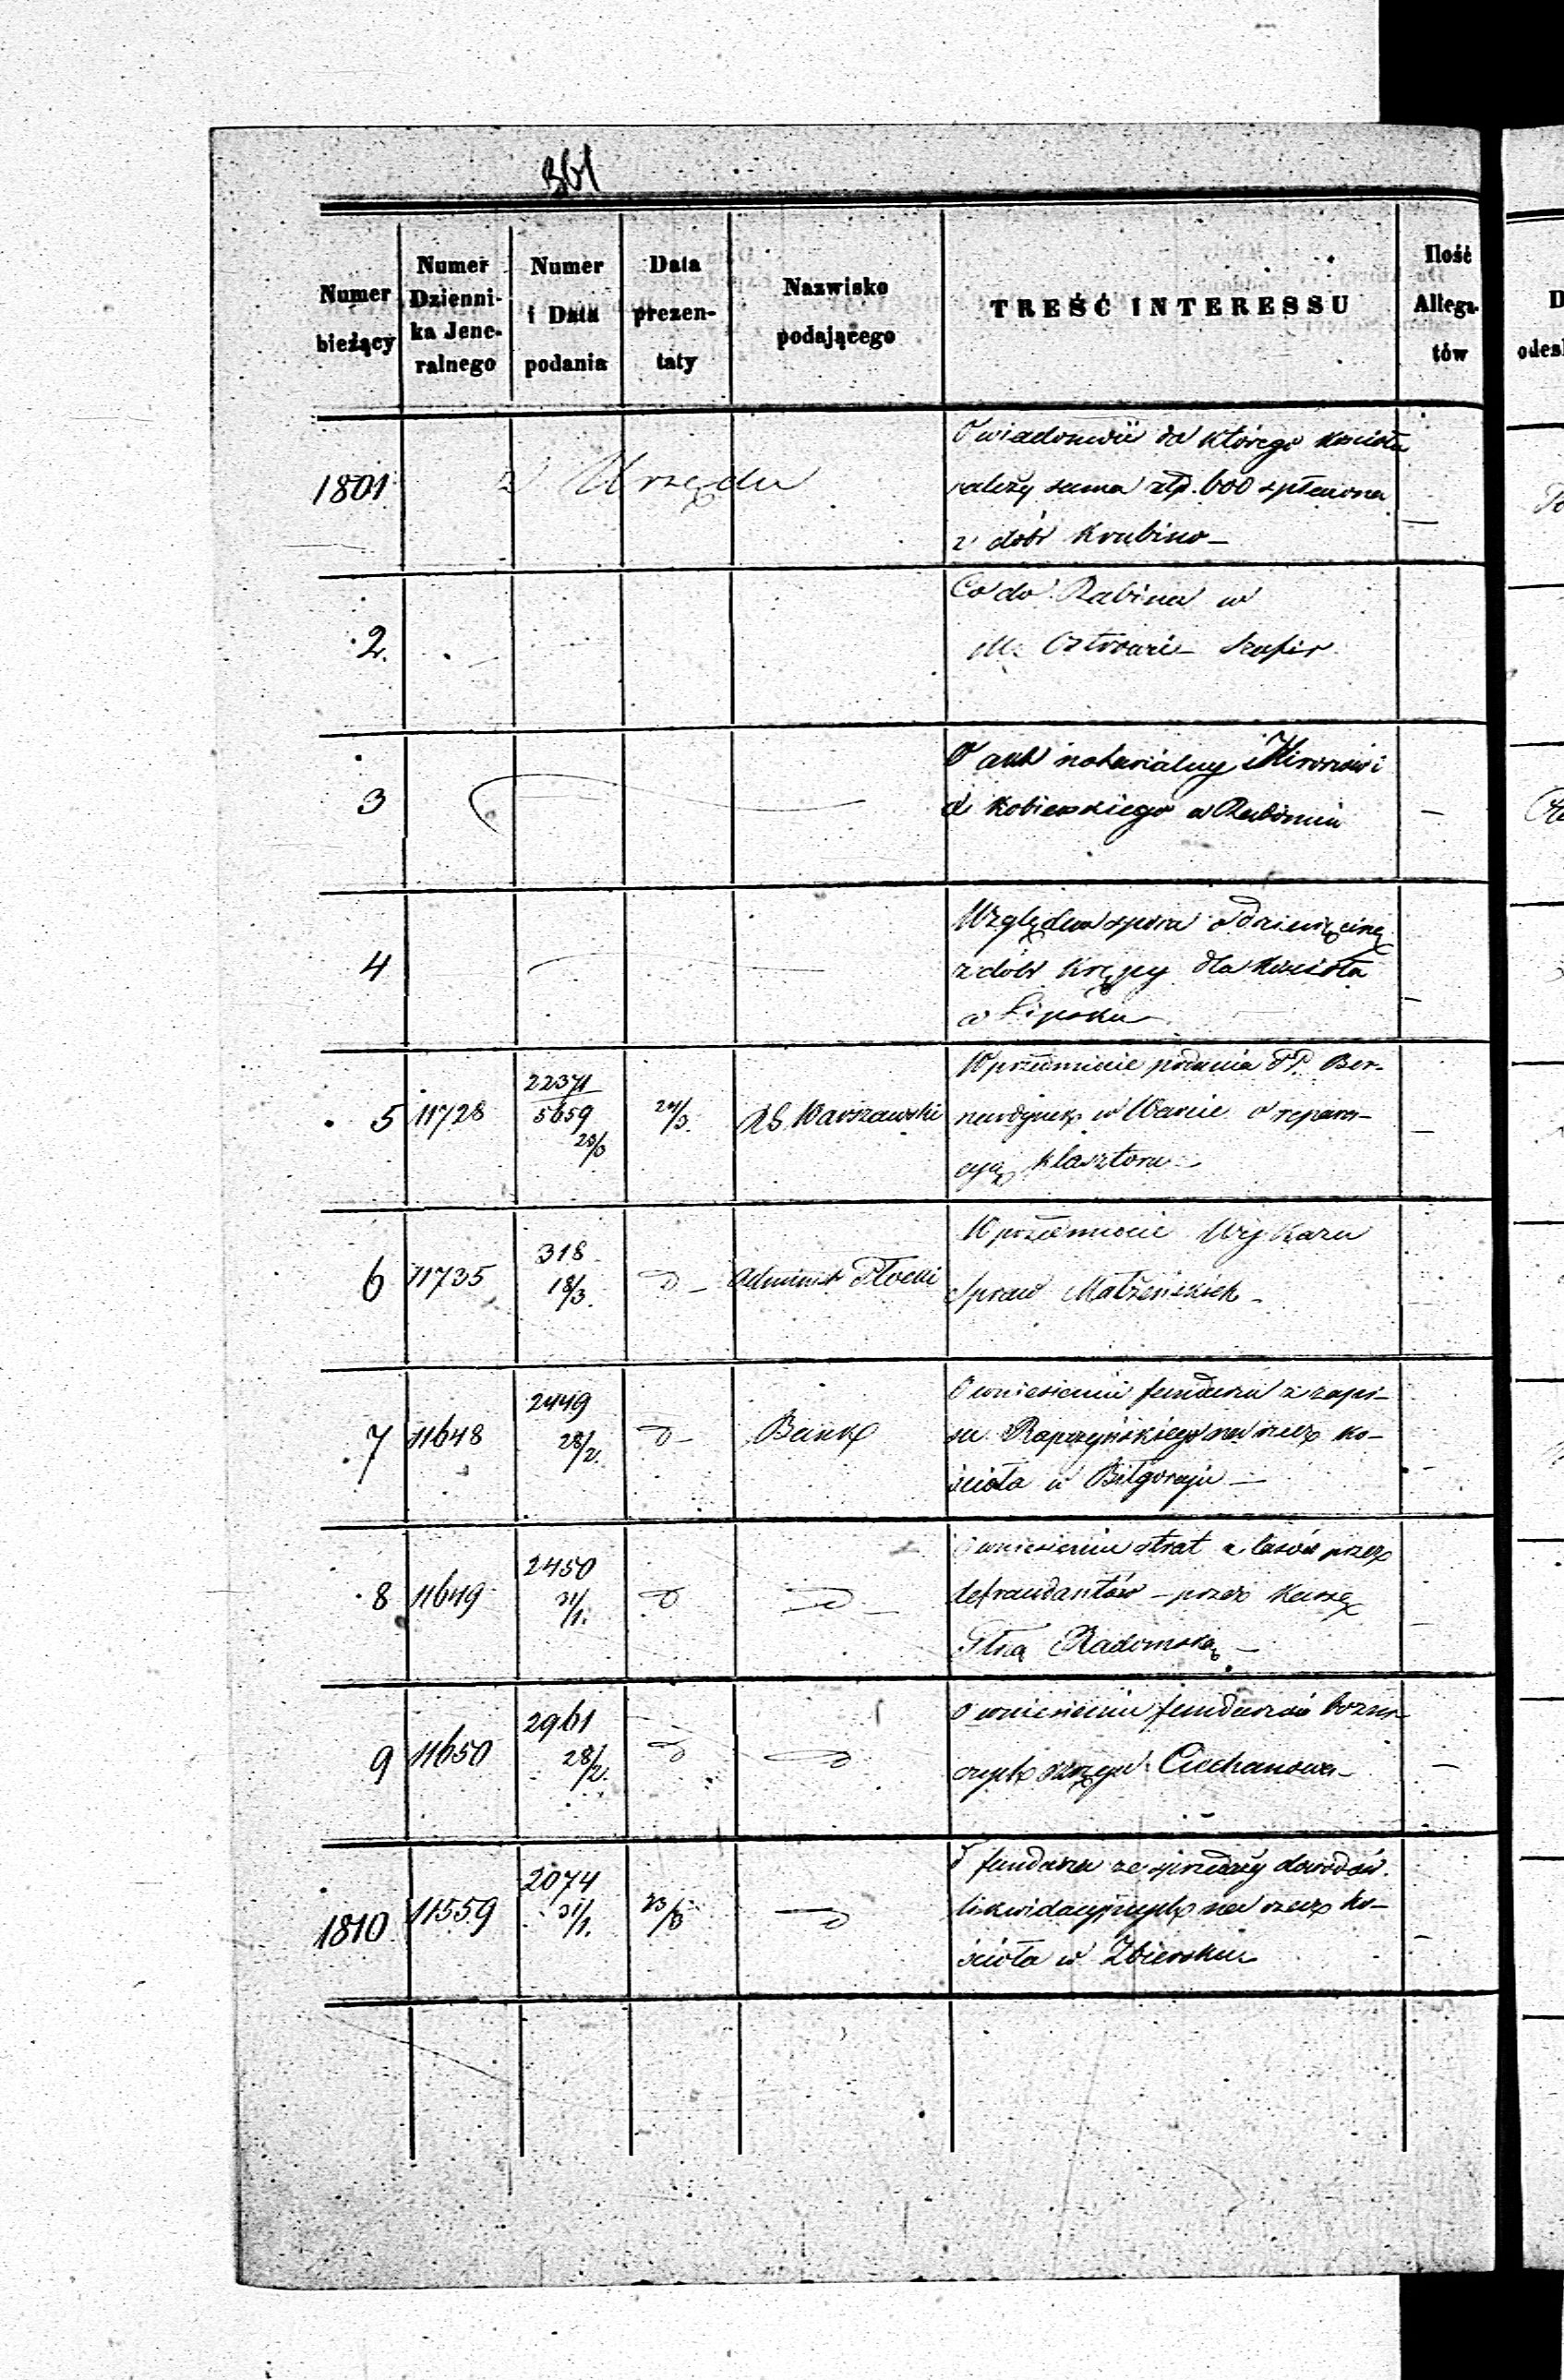 361
Numer bieżący
Numer Dzienni-
ka Jene-
ralnego
Numer i Data podania
Data prezen-
taty
Nazwisko podającego
TREŚĆ INTERESSU
Ilość Allega-
tów
1801
z Urzędu
O wiadomość do którego kościoła
należy suma złp. 600 spłacona
z dóbr Krubino –
2.
Co do Rabina w
M. Szafir
3
O akt notarialny
Kobierskiego w
4
Względem sporu o dziesięcinę
z dóbr Krępy dla kościoła
w Lipsku
5 11728
22371
5659
23/3
24/3.
RG. Warszawski
W przedmiocie podania PP. Ber-
nardynek w Warcie o repara-
cyą klasztoru –
6 11735
318
18/3.
d –
Administ. Płocki
W przedmiocie Wykazu
Spraw Małżeńskich –
7 11648
2449
28/2.
d –
Bank
O wniesieniu funduszu z zapi-
su Rapczyńskiego na rzecz ko-
ścioła w Biłgoraju –
8 11649
2450
31/1.
d
d –
O wniesieniu strat z lasów przez
defraudantów – przez Kassę
Głną Radomską –
9 11650
2961
28/2.
d
d
O wniesieniu funduszów
Ciechanowa –
1810 11559
2074
31/1.
23/3
d
O fundusz ze sprzedaży dowodów
likwidacyjnych na rzecz ko-
ścioła w Zbiersku